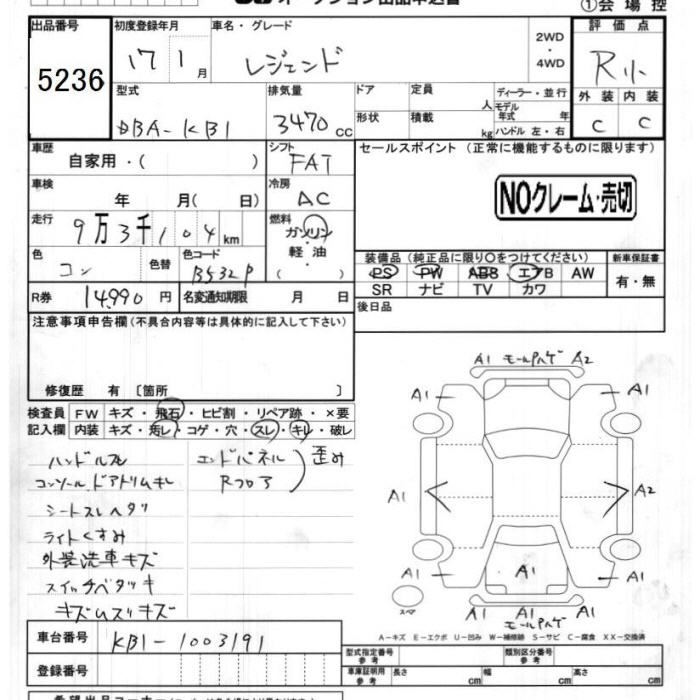 オークション出品申込書
①会場控
出品番号 5236
初度登録年月 17 1月
車名・グレード レジェンド
2WD・4WD
評価点 R小
外装 C 内装 C
型式 DBA-KB1
排気量 3470cc
ドア 形状
定員 人
積載 kg
ディーラー・並行
モデル年式 年式
ハンドル 左・右
車歴 自家用・( )
シフト FAT
セールスポイント (正常に機能するものに限ります)
NOクレーム・売切
車検 年 月( 日)
冷房 AC
走行 9万3千104km
燃料 ガソリン 軽・油 ( )
色 コン 色替
色コード B532P
装備品 (純正品に限り○をつけてください)
PS PW ABS エアB AW
SR ナビ TV カワ
新車保証書 有・無
R券 14,990円
名変通知期限 月 日
後日品
注意事項申告欄 (不具合内容等は具体的に記入して下さい)
修復歴 有 〔箇所 〕
検査員記入欄
FW キズ・飛石・ヒビ割・リペア跡・×要
内装 キズ・汚レ・コゲ・穴・スレ・キレ・破レ
ハンドルスレ
コンソール.ドアトリムキレ
シートスレヘタリ
ライトくすみ
外装洗車キズ
スイッチベタツキ
キズ
エンドパネル
Rフロア
歪み
A1 モールハゲ A2
A1 A1
A1 A2
A1 A1 A1
スペア
A1
モールハゲ
A-キズ E-エクボ U-凹み W-補修跡 S-サビ C-腐食 XX-交換済
車台番号 KB1-1003191
登録番号
型式指定番号 参考
類別区分番号 参考
車庫証明用 参考 長さ cm 幅 cm 高さ cm